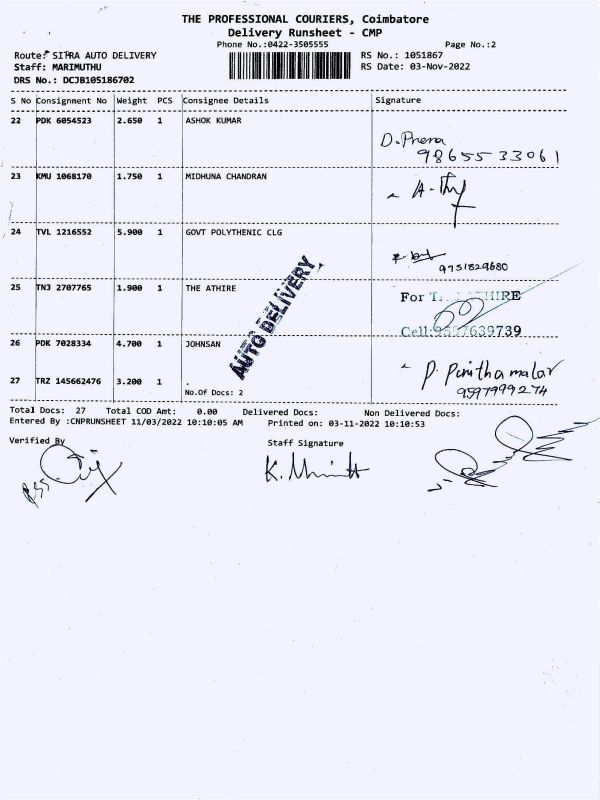 THE PROFESSIONAL COURIERS, Coimbatore
Delivery Runsheet - CMP
Phone No.:0422-3505555 Page No.:2
Route: SITRA AUTO DELIVERY RS No.: 1051867
Staff: MARIMUTHU RS Date: 03-Nov-2022
DRS No.: DCJB105186702
S No Consignment No Weight PCS Consignee Details Signature
22 PDK 6054523 2.650 1 ASHOK KUMAR
D. Prena
98655 33061
23 KMU 1068170 1.750 1 MIDHUNA CHANDRAN
24 TVL 1216552 5.900 1 GOVT POLYTHENIC CLG
9751829680
25 TNJ 2707765 1.900 1 THE ATHIRE
For HIRE
Cell: 639739
AUTO DELIVERY
26 PDK 7028334 4.700 1 JOHNSAN
P. Punithamalar
9597999274
27 TRZ 145662476 3.200 1 .
No.Of Docs: 2
Total Docs: 27 Total COD Amt: 0.00 Delivered Docs: Non Delivered Docs:
Entered By :CNPRUNSHEET 11/03/2022 10:10:05 AM Printed on: 03-11-2022 10:10:53
Verified By Staff Signature